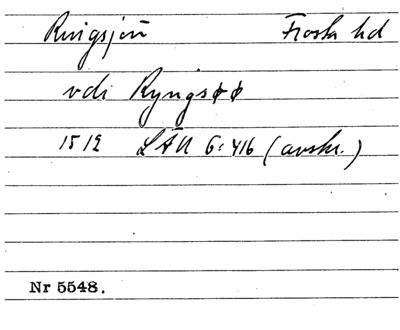 Ringsjön Frosta hd
vdi Ryngsøø
1512 LÄU 6:416 (avskr.)
Nr 5548.